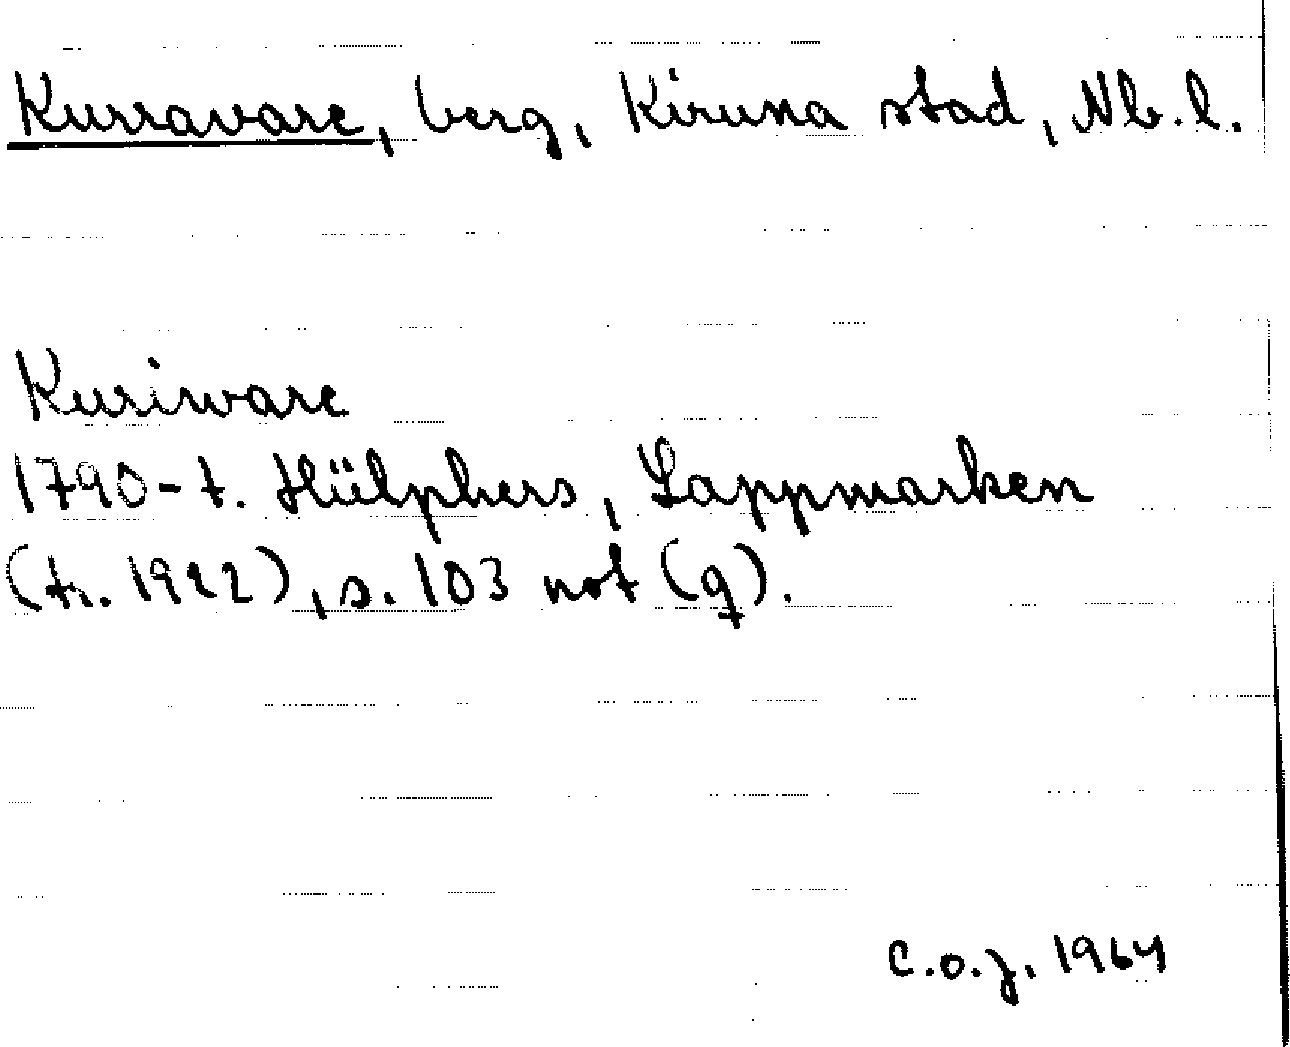 Kurravare, berg, Kiruna stad, Nb.l.
Kuriware
1790-t. Hülphers, Lappmarken
(tr. 1922), s. 103 not (q).
C.O.J. 1964